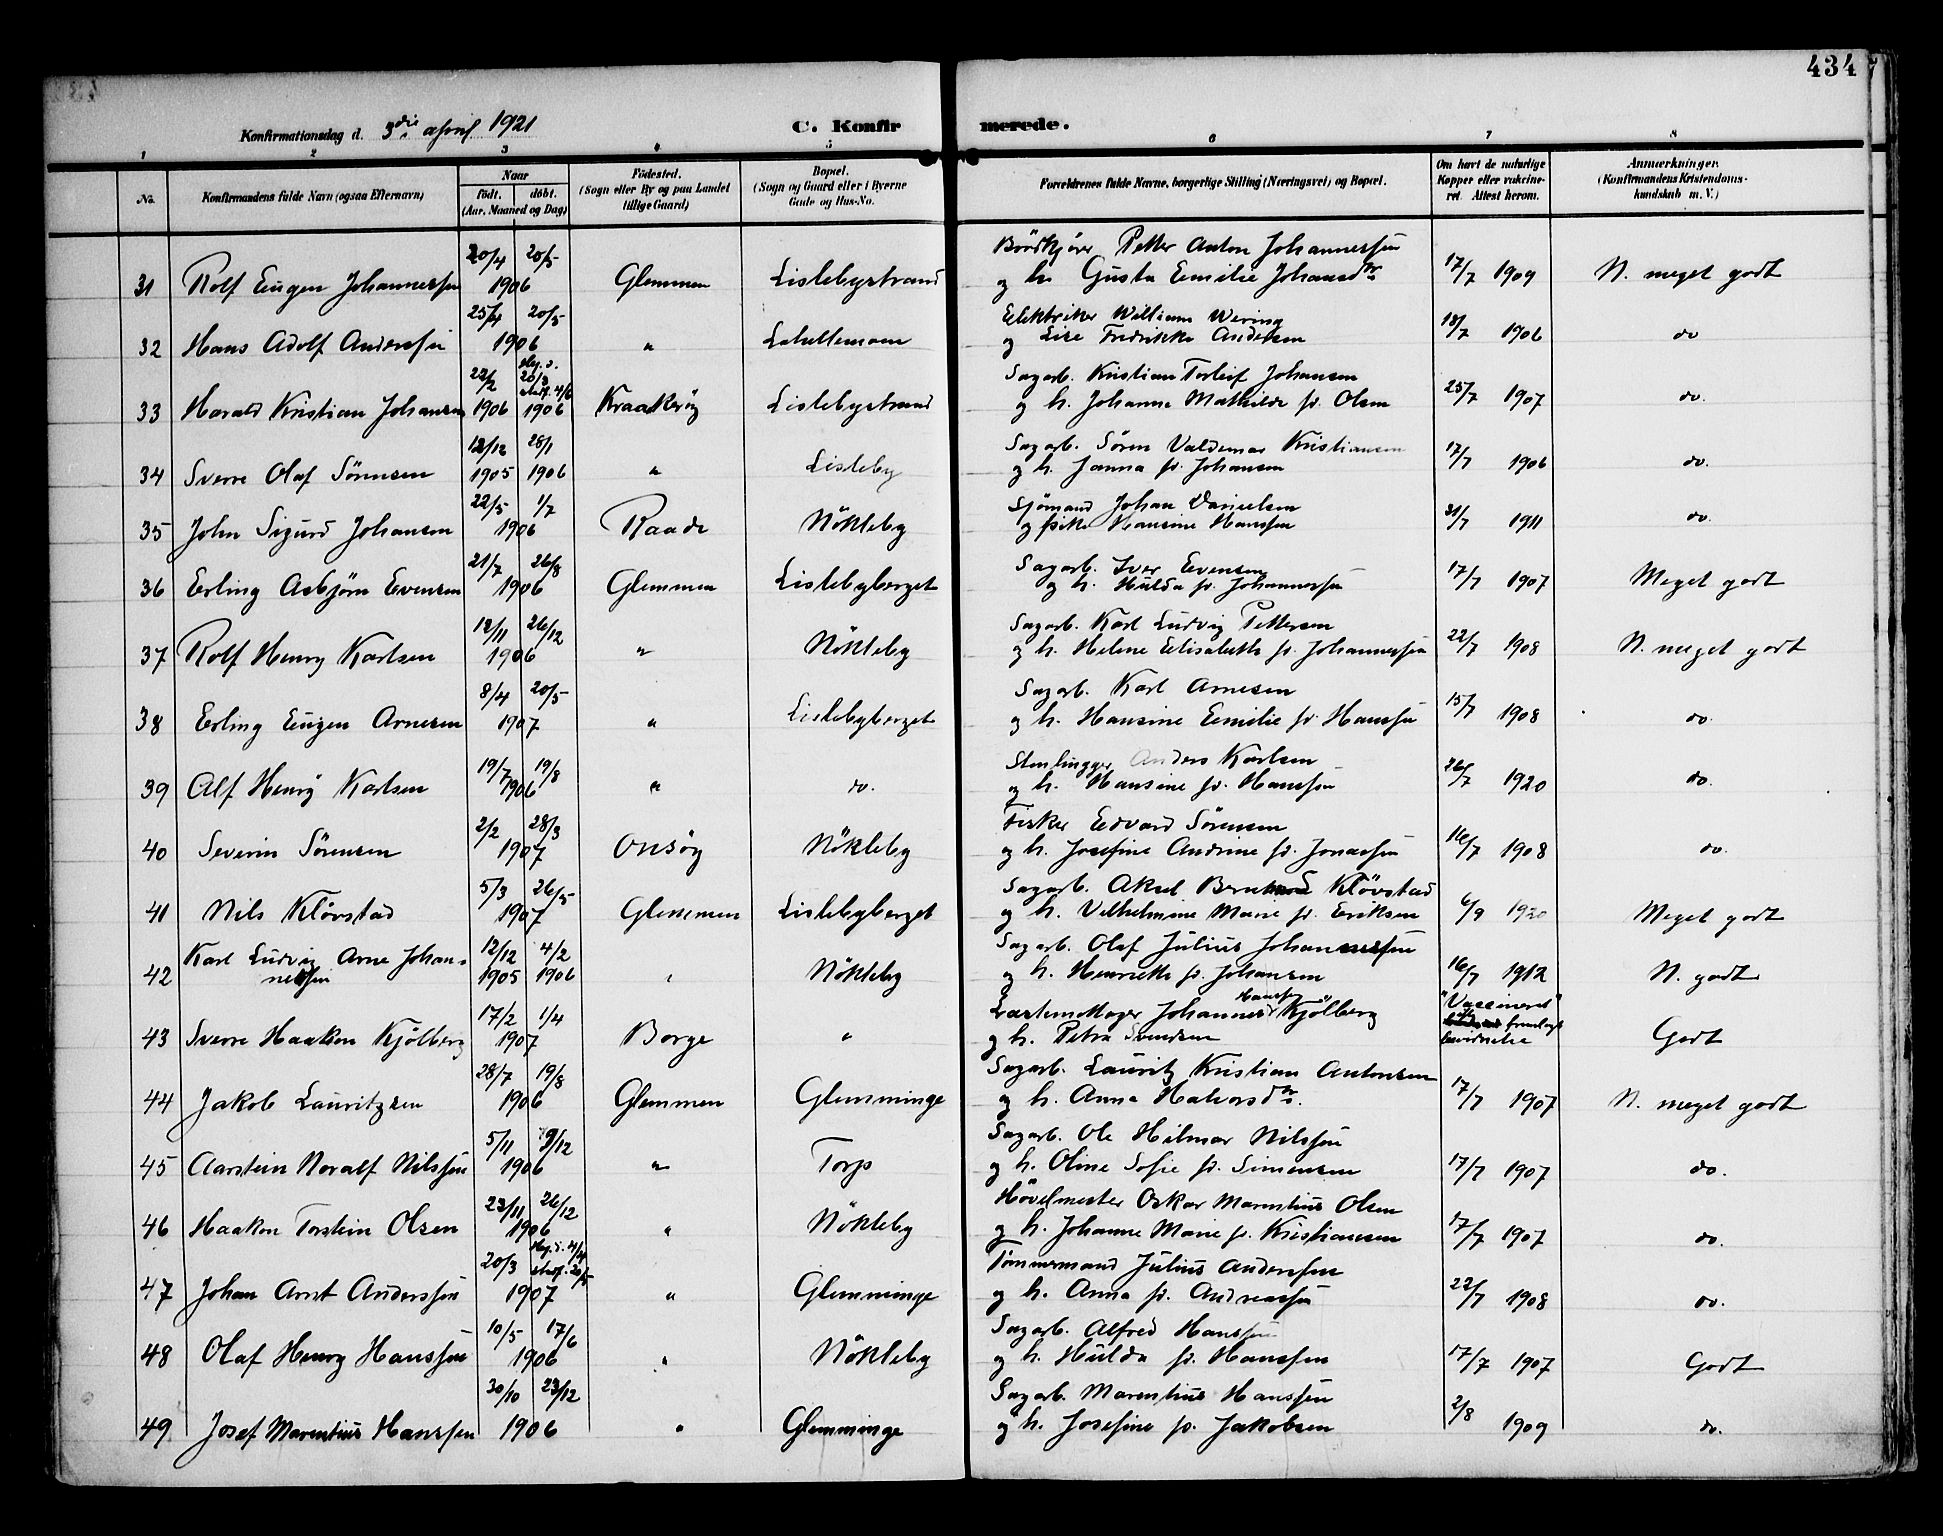 434
Konfirmationsdag d. 3die april 1921
C. Konfirmerede.
1 2 3 4 5 6 7 8
No.
Konfirmandens fulde Navn (ogsaa Efternavn)
Naar
født. døbt.
(Aar, Maaned og Dag)
Fødested.
(Sogn eller By og paa Landet
tillige Gaard)
Bopæl.
(Sogn og Gaard eller i Byerne
Gade og Hus-No.
Forældrenes fulde Navne, borgerlige Stilling (Næringsvei) og Bopæl.
Om havt de naturlige
Kopper eller vakcine-
ret. Attest herom.
Anmærkninger.
(Konfirmandens Kristendoms-
kundskab m. V.)
20/4 20/5 Brödkjörer Petter Anton Johannessen
31 Rolf Eugen Johannessen 1906 Glemmen Lislebystrand og h. Gusta Emilie Johansdr 17/7 1909 N. meget godt
25/4 20/5 Elektriker William Wering
32 Hans Adolf Anderssen 1906 " og Lise Fredrikke Andersen 18/7 1906 do
22/2 20/3 4/6 Sagarb. Kristian Torleif Johansen
33 Harald Kristian Johansen 1906 1906 Kraakeröy Lislebystrand og h. Johanne Mathilde f. Olsen 25/7 1907 do.
12/12 28/1 Sagarb. Sören Valdemar Kristiansen
34 Sverre Olaf Sörensen 1905 1906 " Lisleby og h. Janna f. Johansen 17/7 1906 do.
22/5 1/7 Sjömand Johan Danielsen
35 John Sigurd Johansen 1906 Raade Nökleby og pike Hansine Hanssen 31/7 1911 do.
21/7 26/8 Sagarb. Iver Evensen
36 Erling Asbjörn Evensen 1906 Glemmen Lislebyberget og h. Hulda f. Johannessen 17/7 1907 Meget godt
12/11 26/12 Sagarb. Karl Ludvig Pettersen
37 Rolf Henry Karlsen 1906 " Nökleby og h. Helene Elisabeth f. Johannessen 22/7 1908 N. meget godt
8/4 20/5 Sagarb. Karl Arnesen
38 Erling Eugen Arnesen 1907 " Lislebyberget og h. Hansine Emilie f. Hanssen 15/7 1908 do.
19/7 19/8 Stenhugger Anders Karlsen
39 Alf Henry Karlsen 1906 " do. og h. Hansine f. Hanssen 26/7 1920 do.
2/2 28/3 Fisker Edvard Sörensen
40 Severin Sörensen 1907 Onsöy Nökleby og h. Josefine Andrine f. Jonassen 16/7 1908 do.
5/3 26/5 Sagarb. Aksel Klövstad
41 Nils Klövstad 1907 Glemmen Lislebyberget og h. Vilhelmine Marie f. Eriksen 6/9 1920 Meget godt
Karl Ludvig Arne Johan- 12/12 4/2 Sagarb. Olaf Julius Johannessen
42 nessen 1905 1906 " Nökleby og h. Henriette f. Johansen 16/7 1912 N. godt
17/2 1/4 Lastemottager Johannes Hanssen Kjölberg "Vaccineret"
43 Sverre Haakon Kjölberg 1907 Borge " og h. Petra Svendsen Godt
28/7 19/8 Sagarb. Lauritz Kristian Antonsen
44 Jakob Lauritzsen 1906 Glemmen Glemminge og h. Anna Halvorsdr. 17/7 1907 N. meget godt
5/11 9/12 Sagarb. Ole Hilmar Nilssen
45 Aarstein Noralf Nilssen 1906 " Torp og h. Oline Sofie f. Simensen 17/7 1907 do.
23/11 26/12 Hövelmester Oskar Marentius Olsen
46 Haakon Torstein Olsen 1906 " Nökleby og h. Johanne Marie f. Kristiansen 17/7 1907 do.
20/3 Tömmermand Julius Anderssen
47 Johan Arnt Anderssen 1907 " Glemminge og h. Anna f. Andreassen 22/7 1908 do.
10/5 17/6 Sagarb. Alfred Hanssen
48 Olaf Henry Hanssen 1906 " Nökleby og h. Hulda f. Hanssen 17/7 1907 Godt
30/10 23/12 Sagarb. Marentius Hanssen
49 Josef Marentius Hanssen 1906 " Glemminge og h. Josefine f. Jakobsen 2/8 1909 do.